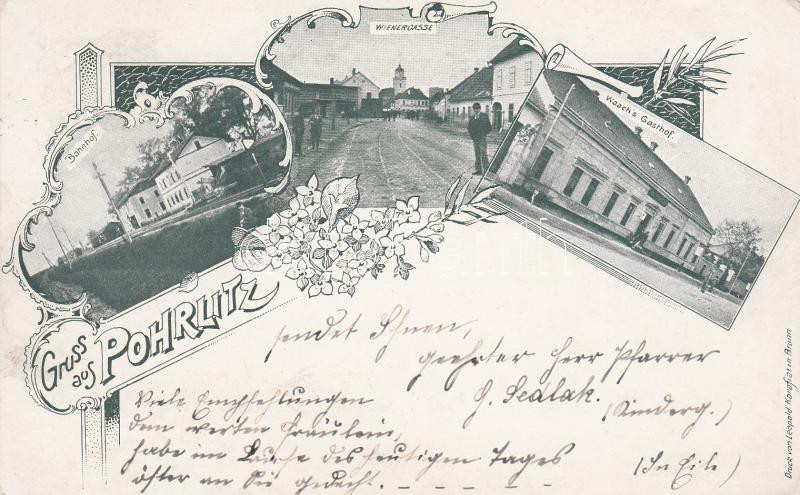 WIENERGASSE
Bahnhof.
Waach's Gasthof.
Gruss aus POHRLITZ
sendet Ihnen,
geehrter Herr Pfarrer
G. Sedlak.
(Kinderg.)
Viele Empfehlungen
dem werten Fräulein,
habe im Laufe des heutigen Tages
öfter an Sie gedacht. _ _ _ _ _
(In Eile)
Druck von Leopold Karafiat in Brünn